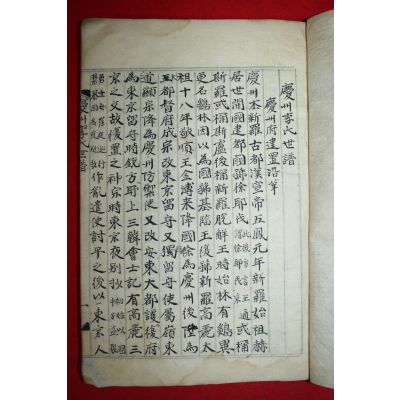 慶州李氏世譜
慶州府建置沿革
慶州本新羅古都漢宣帝五鳳元年新羅始祖赫
居世開國建都國號徐耶伐
此後方言王
通或稱
新羅或稱斯盧後稱新羅脫解王時始林有鷄異
更名鷄林因以為國號基臨王復號新羅高麗太
祖十八年敬順王金傅來降國除為慶州後陞為
大都督府成宗改東京留守又
留守使屬嶺東
道顯宗降為慶州防禦使又改安東大都護復府
為東京留守時銳方
上三韓會土記有高麗三
京之文故復置之神宗時東京夜別抄
作亂遣使討平之後以東京人
慶州李氏世譜